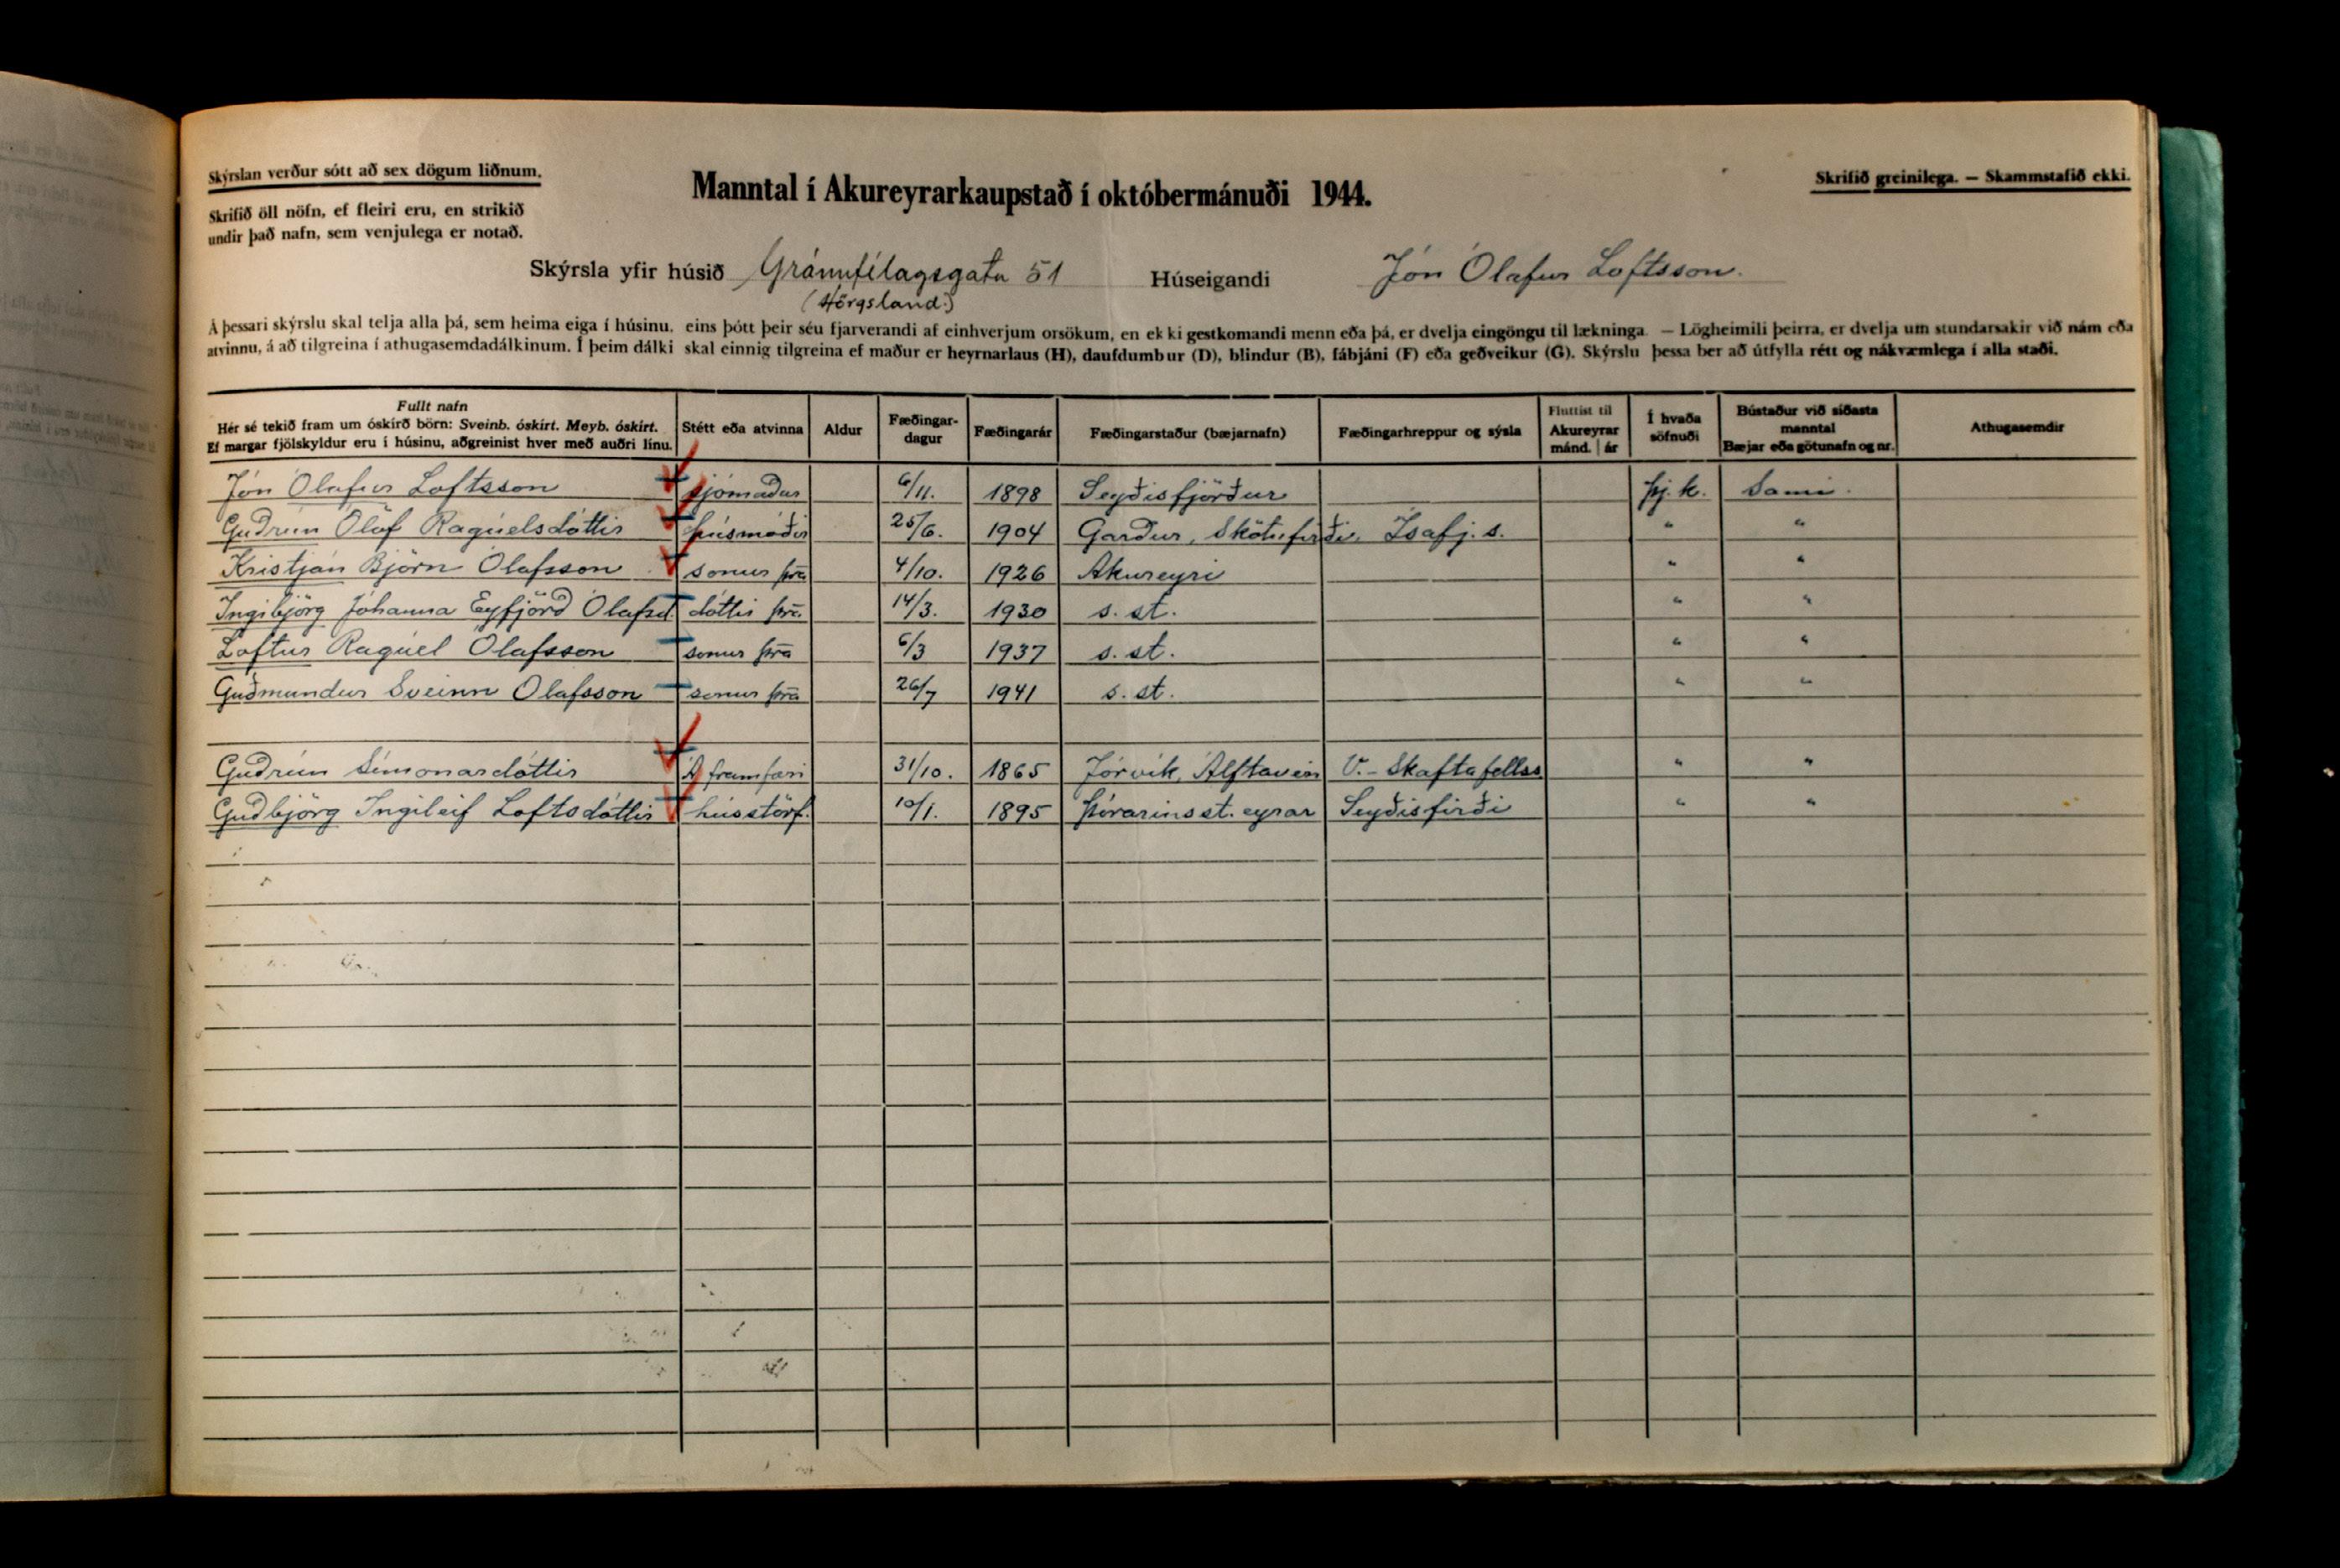 Skýrslan verður sótt að sex dögum liðnum.
Skrifið öll nöfn, ef fleiri eru, en strikið
undir það nafn, sem venjulega er notað.
Manntal í Akureyrarkaupstað í októbermánuði 1944.
Skrifið greinilega. — Skammstafið ekki.
Skýrsla yfir húsið Gránufélagsgata 51 Húseigandi Jón Ólafur Loftsson.
(Hörgsland.)
Á þessari skýrslu skal telja alla þá, sem heima eiga í húsinu, eins þótt þeir séu fjarverandi af einhverjum orsökum, en ekki gestkomandi menn eða þá, er dvelja eingöngu til lækninga. — Lögheimili þeirra, er dvelja um stundarsakir við nám eða
atvinnu, á að tilgreina í athugasemdadálkinum. Í þeim dálki skal einnig tilgreina ef maður er heyrnarlaus (H), daufdumbur (D), blindur (B), fábjáni (F) eða geðveikur (G). Skýrslu þessa ber að útfylla rétt og nákvæmlega í alla staði.
Fullt nafn
Hér sé tekið fram um óskírð börn: Sveinb. óskírt. Meyb. óskírt.
Ef margar fjölskyldur eru í húsinu, aðgreinist hver með auðri línu.
Stétt eða atvinna
Aldur
Fæðingar-
dagur
Fæðingarár
Fæðingarstaður (bæjarnafn)
Fæðingarhreppur og sýsla
Fluttist til
Akureyrar
mánd. | ár
Í hvaða
söfnuði
Bústaður við síðasta
manntal
Bæjar eða götunafn og nr.
Athugasemdir
Jón Ólafur Loftsson sjómaður 6/11. 1898 Seyðisfjörður þj.k. Sami.
Guðrún Ólöf Ragúelsdóttir húsmóðir 25/6. 1904 Garður, Skötufirði, Ísafj.s. " "
Kristján Björn Ólafsson sonur þra 4/10. 1926 Akureyri " "
Ingibjörg Jóhanna Eyfjörð Ólafsd. dóttir þra 14/3. 1930 s. st. " "
Loftur Ragúel Ólafsson sonur þra 6/3 1937 s. st. " "
Guðmundur Sveinn Ólafsson sonur þra 26/7 1941 s. st. " "
Guðrún Símonardóttir Á framfæri 31/10. 1865 Jórvík, Álftaveri V.-Skaftafellss " "
Guðbjörg Ingileif Loftsdóttir hússtörf. 10/1. 1895 Þórarinsst. eyrar Seyðisfirði " "